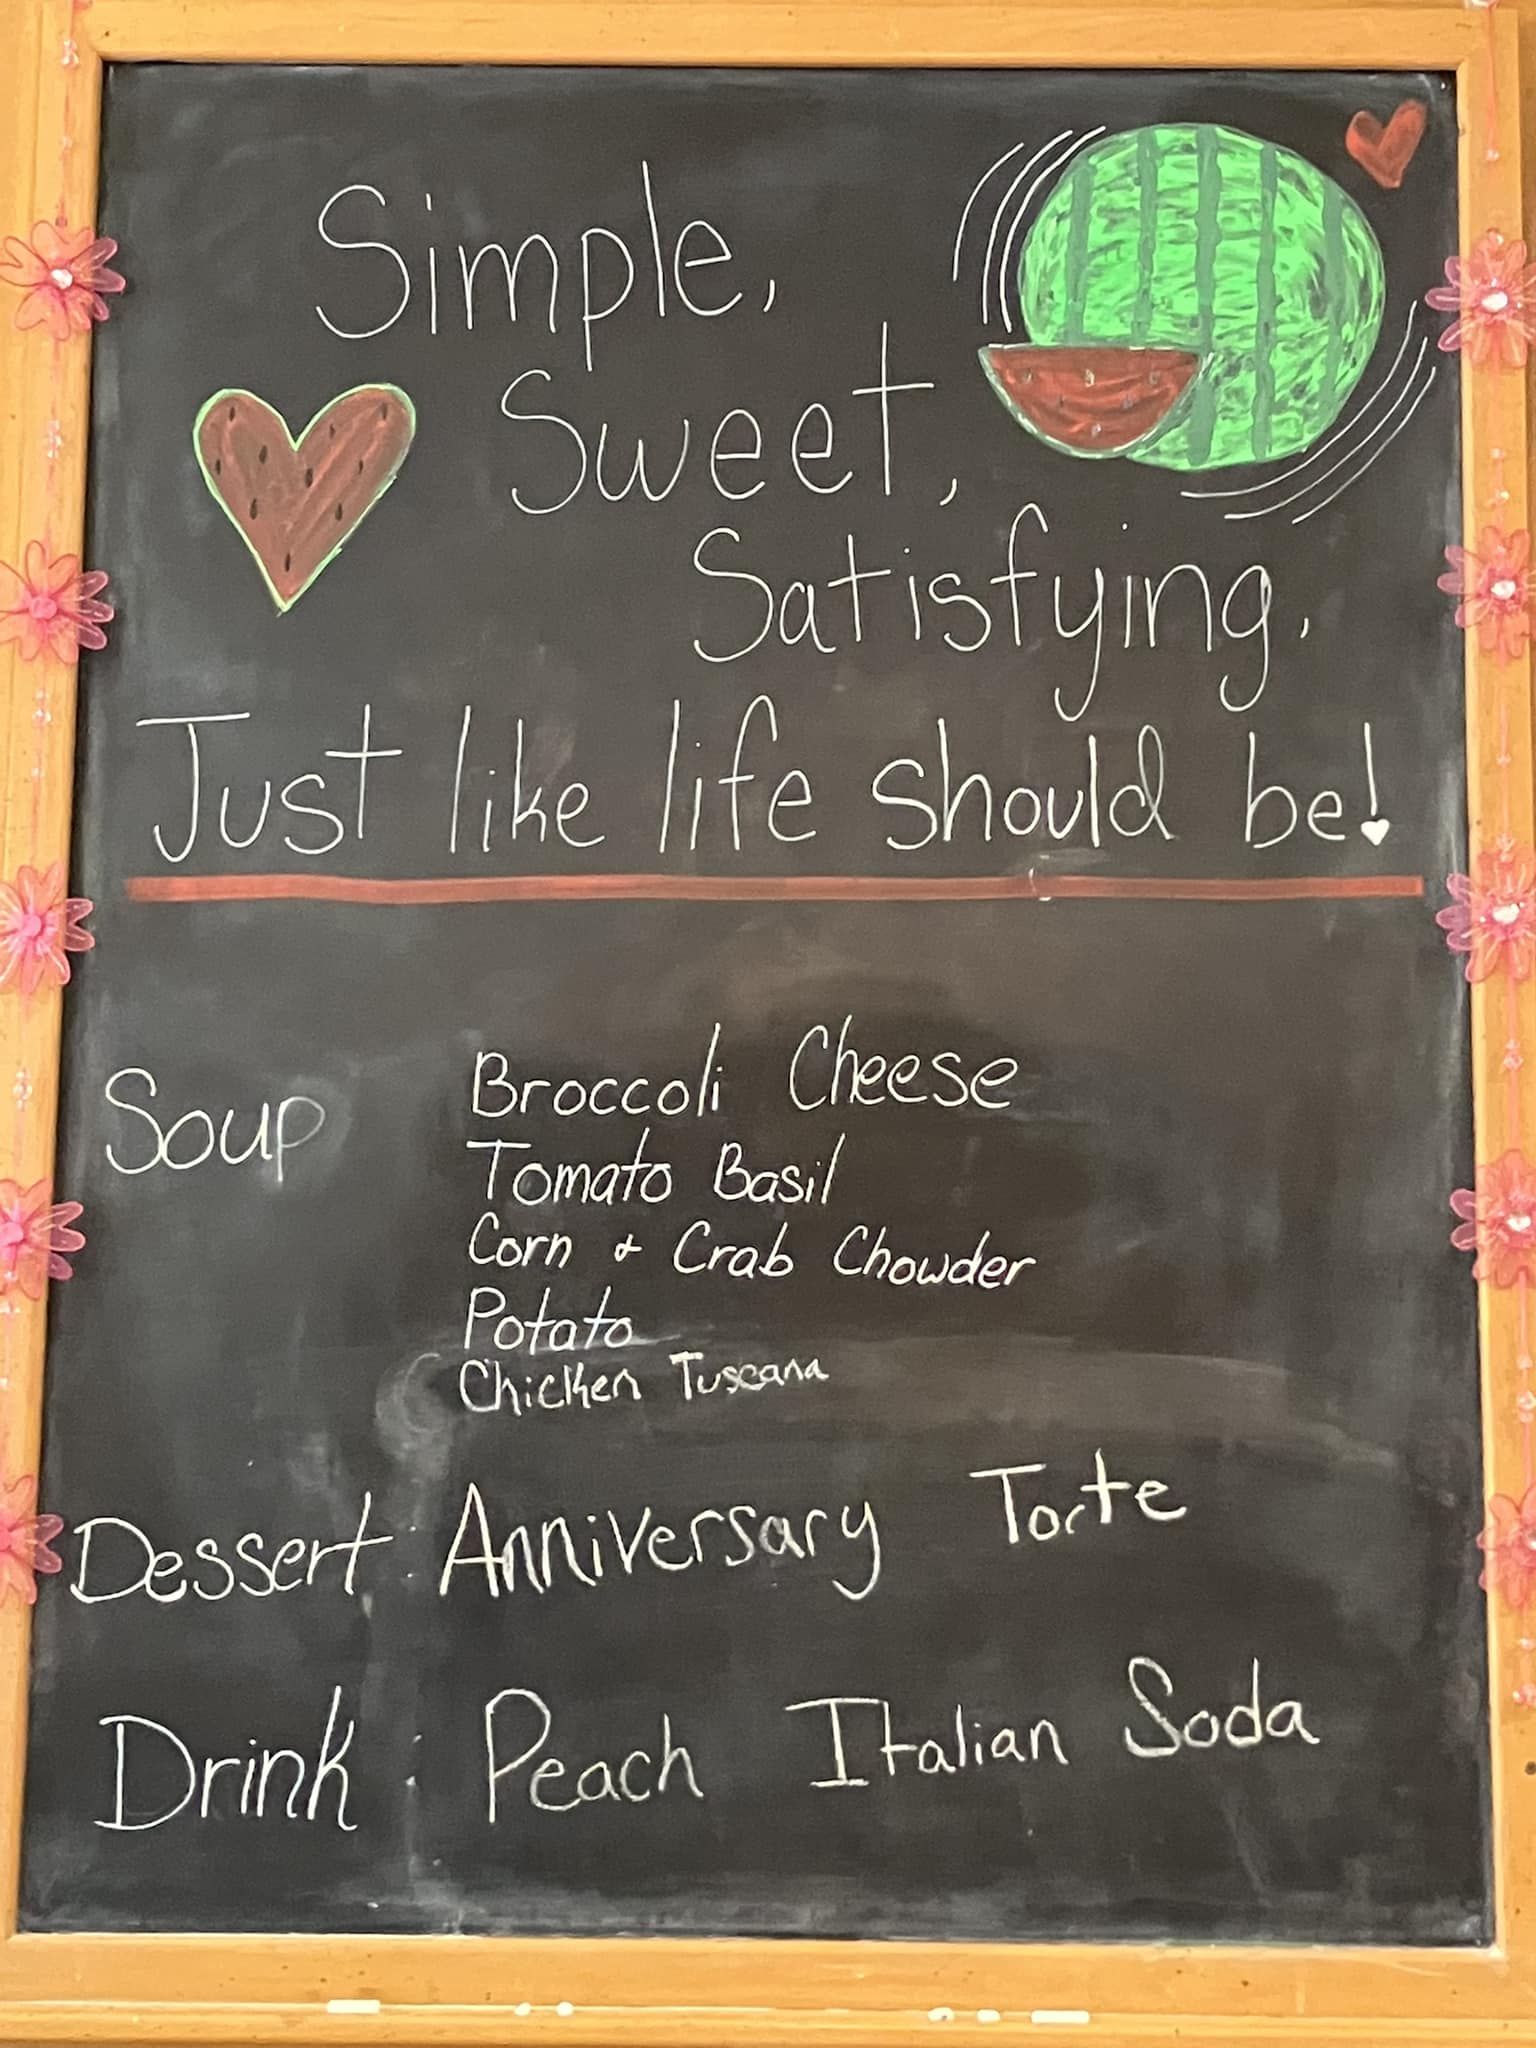 Simple,
Sweet,
Satisfying.
Just like life should be!
Soup
Broccoli Cheese
Tomato Basil
Corn & Crab Chowder
Potato
Chicken Tuscana
Dessert: Anniversary Torte
Drink: Peach Italian Soda